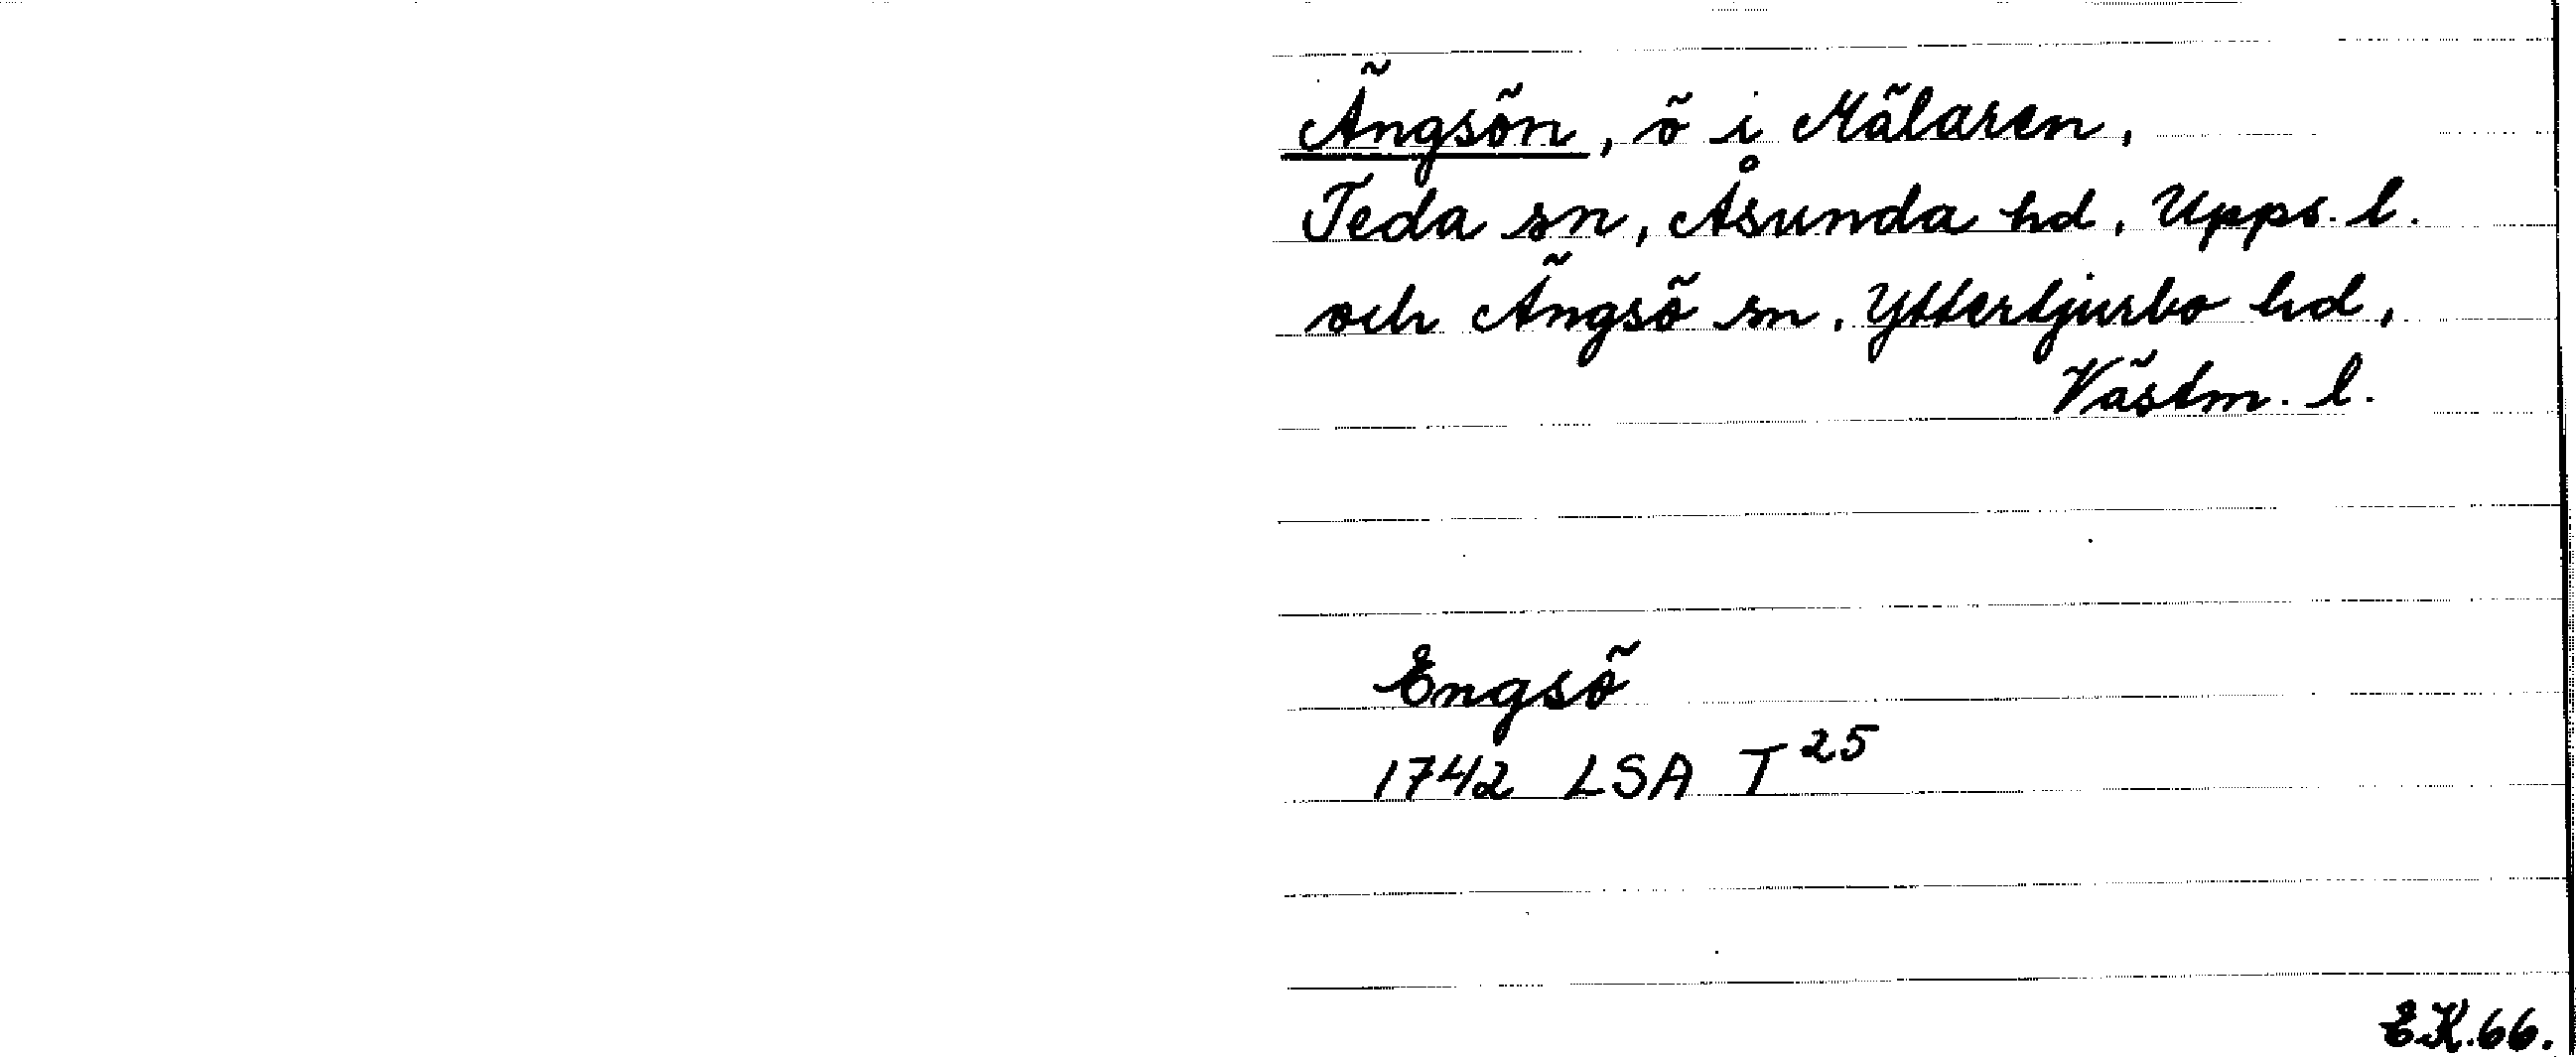 Ängsön, ö i Mälaren,
Teda sn, Åsunda hd, Upps. l.
och Ängsö sn, Yttertjurbo hd,
Västm. l.
Engsö
1742 LSA T 25
EK.66.